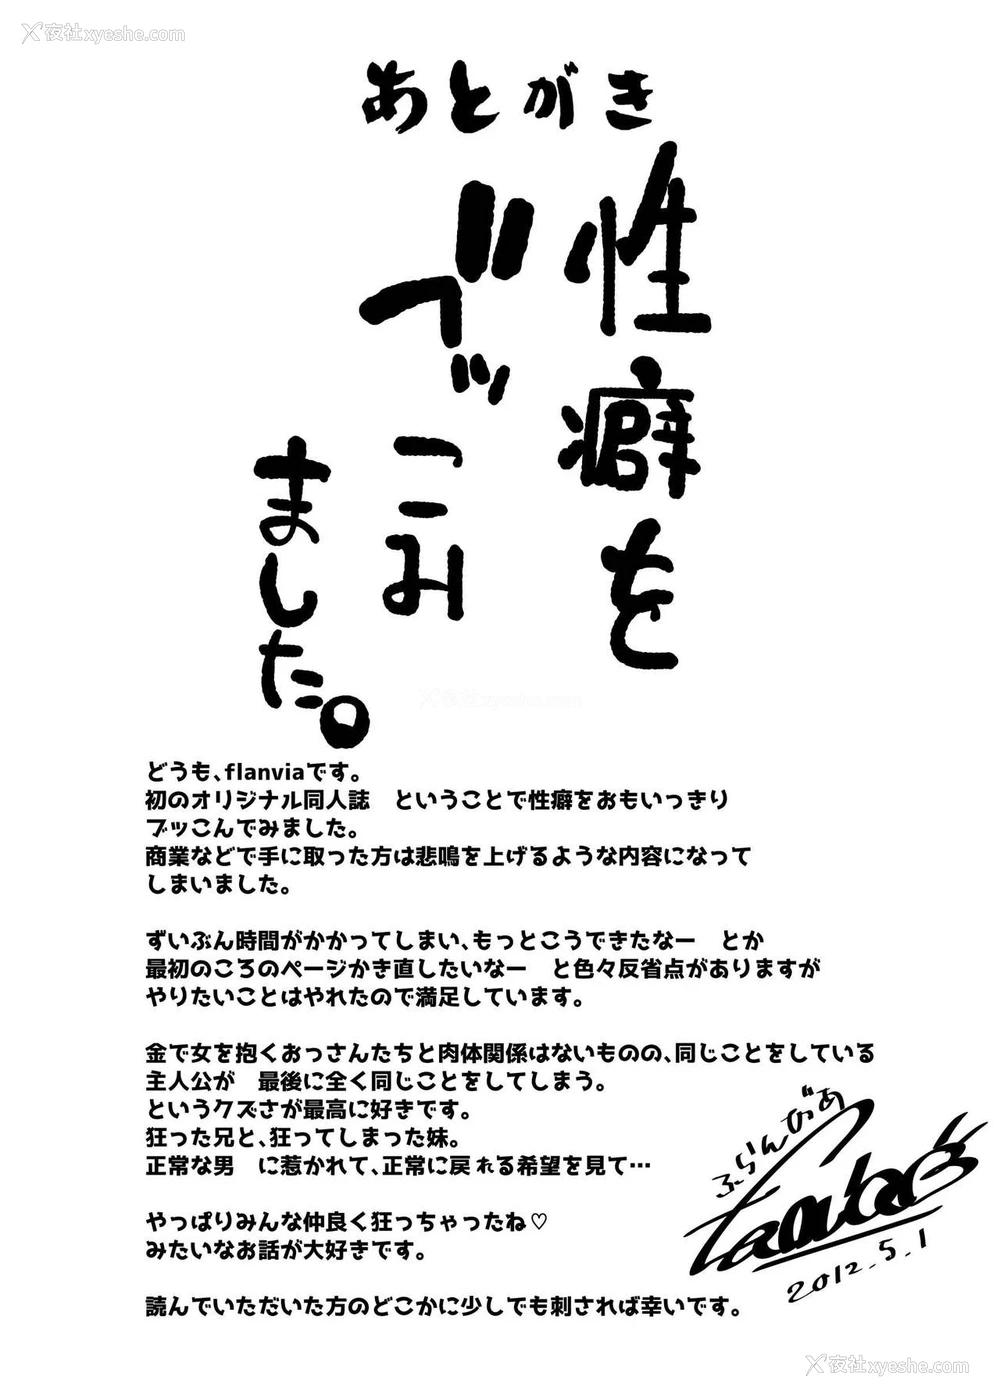 夜社xyeshe.com
あとがき
性癖を
ブッこみ
ました。
夜社xyeshe.com
どうも、flanviaです。
初のオリジナル同人誌　ということで性癖をおもいっきり
ブッこんでみました。
商業などで手に取った方は悲鳴を上げるような内容になって
しまいました。
ずいぶん時間がかかってしまい、もっとこうできたなー　とか
最初のころのページかき直したいなー　と色々反省点がありますが
やりたいことはやれたので満足しています。
金で女を抱くおっさんたちと肉体関係はないものの、同じことをしている
主人公が　最後に全く同じことをしてしまう。
というクズさが最高に好きです。
狂った兄と、狂ってしまった妹。
正常な男　に惹かれて、正常に戻れる希望を見て…
やっぱりみんな仲良く狂っちゃったね♡
みたいなお話が大好きです。
読んでいただいた方のどこかに少しでも刺されば幸いです。
ふらんびあ
2012.5.1
夜社xyeshe.com